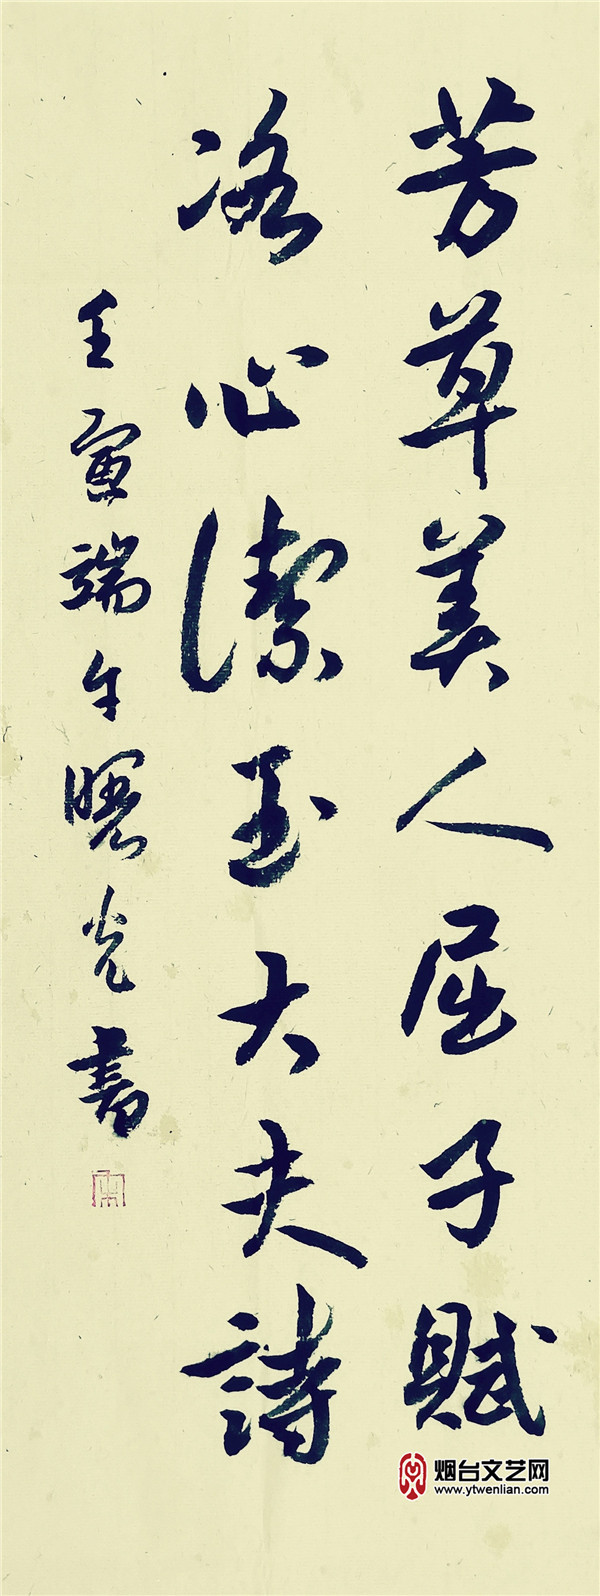 芳草美人屈子賦
冰心潔玉大夫詩
壬寅端午曙光書
烟台文艺网
www.ytwenlian.com